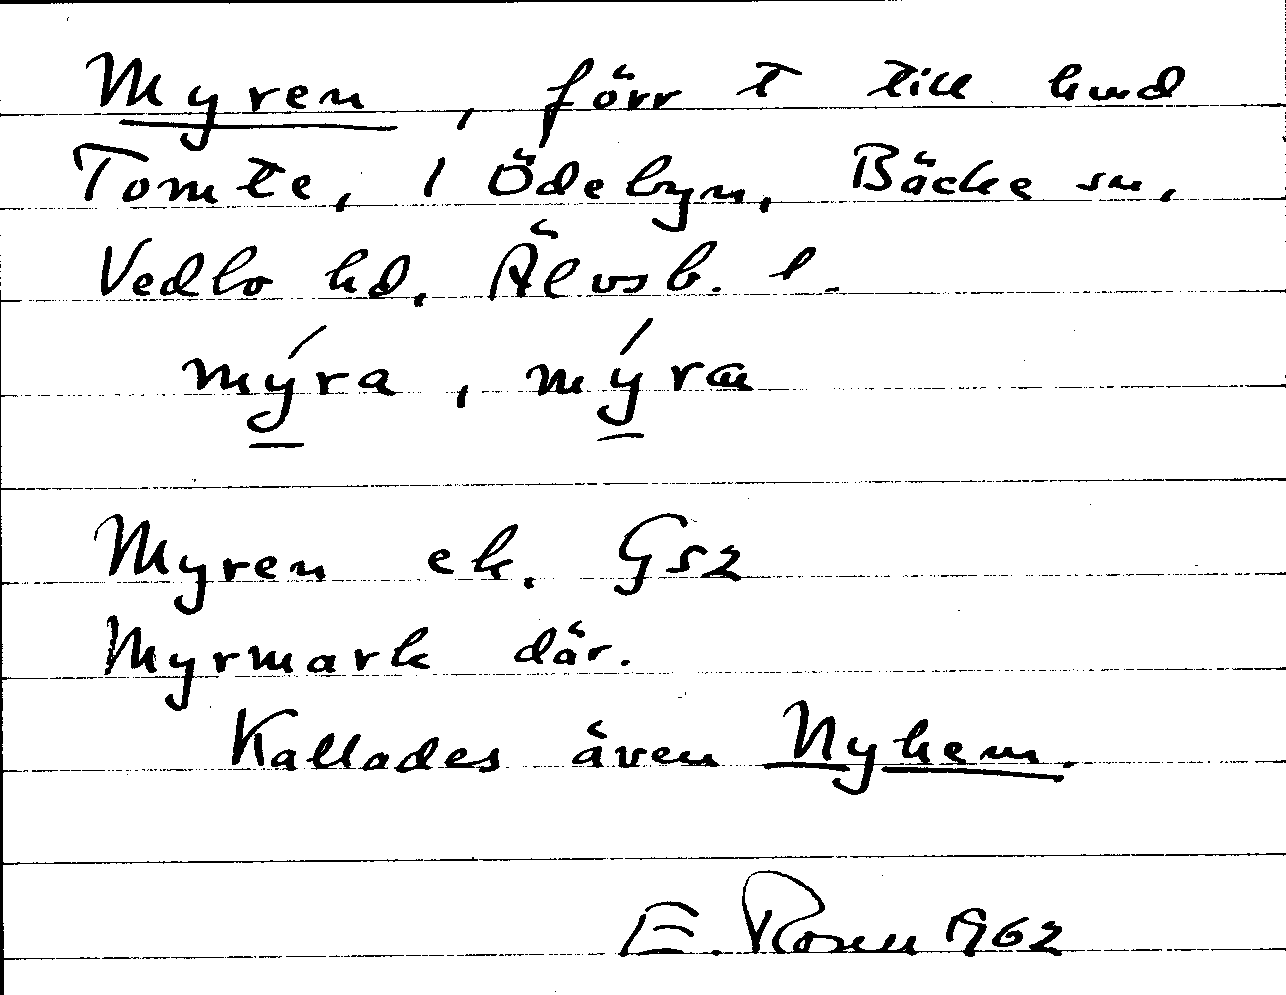 Myren, förr t till hmd
Tomte, 1 Ödebyn, Bäcke sn,
Vedbo hd, Älvsb. l.
mýra, mýræ
Myren ek. Gs2
Myrmark där.
Kallades även Nyhem.
E. Rosen 1962